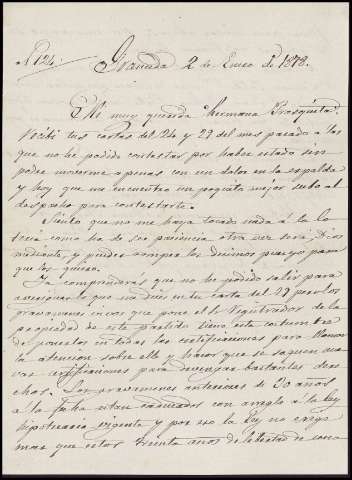 Nº 124.
Granada 2 de Enero de 1878.
Mi muy querida hermana Frasquita:
Recibí tus cartas del 24 y 29 del mes pasado a las
que no he podido contestar por haber estado sin
poder moverme apenas con un dolor en la espalda
y hoy que me encuentro un poquito mejor subo al
despacho para contestarte.
Siento que no me haya tocado nada á la lo-
tería como ha de ser paciencia otra vez será, Dios
mediante, y puedes romper los decimos pues yo para
que los quiero.
Ya comprenderás que no he podido salir para
averiguar lo que me dices en tu carta del 29 pero los
gravamenes                que pone el             Registrador de la
propiedad de este partido tiene esta costumbre
de ponerlos en todas las certificaciones para llamar
la atencion sobre ello y hacer que se saquen nue-
vas certificaciones para devengar bastantes dere-
chos. Los gravamenes anteriores de 30 años
á la fecha estan caducados con arreglo á la ley
hipotecaria vigente y por eso la Ley no exige
mas que estos treinta años de libertad de una